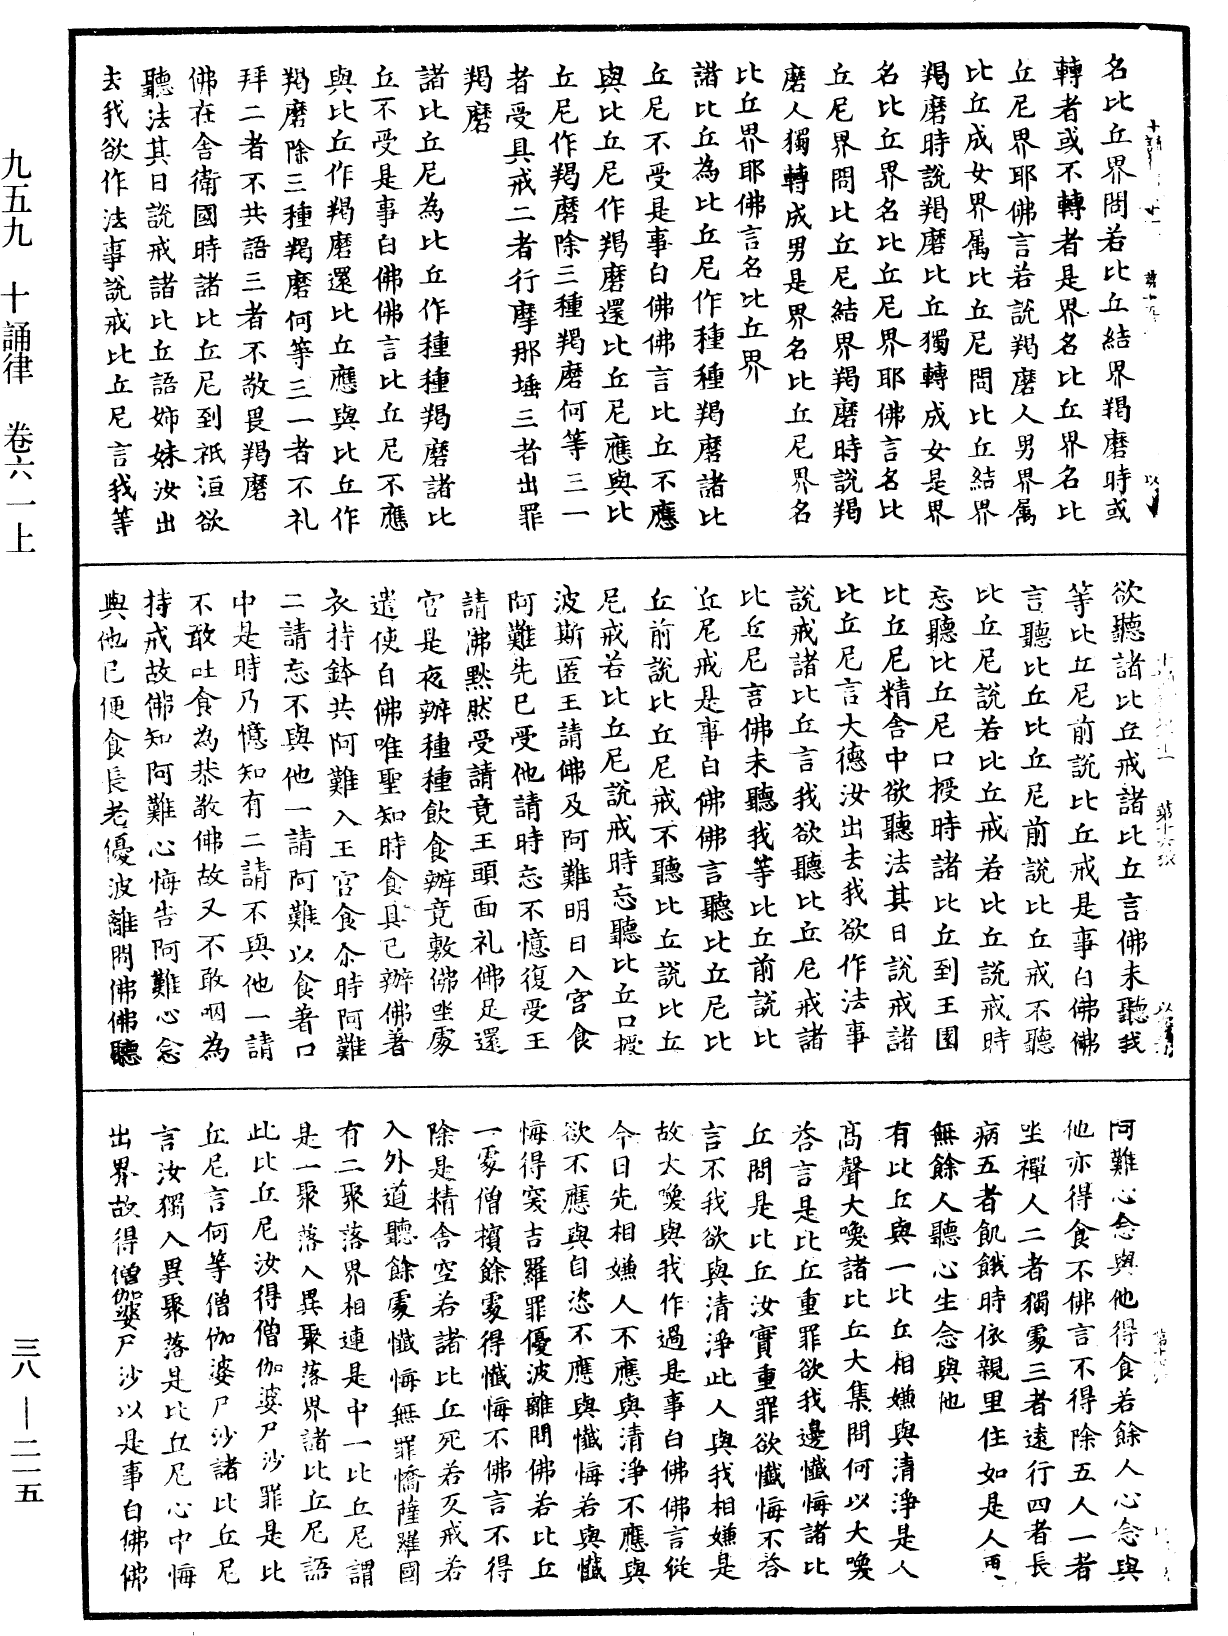 名比丘界問若比丘結界羯磨時或
轉者或不轉者是界名比丘界名比
丘尼界耶佛言若說羯磨人男界属
比丘成女界属比丘尼問比丘結界
羯磨時說羯磨比丘獨轉成女是界
名比丘界名比丘尼界耶佛言名比
丘尼界問比丘尼結界羯磨時說羯
磨人獨轉成男是界名比丘尼界名
比丘界耶佛言名比丘界
諸比丘為比丘尼作種種羯磨諸比
丘尼不受是事白佛佛言比丘不應
與比丘尼作羯磨還比丘尼應與比
丘尼作羯磨除三種羯磨何等三一
者受具戒二者行摩那埵三者出罪
羯磨
諸比丘尼為比丘作種種羯磨諸比
丘不受是事白佛佛言比丘尼不應
與比丘作羯磨還比丘應與比丘作
羯磨除三種羯磨何等三一者不礼
拜二者不共語三者不敬畏羯磨
佛在舍衛國時諸比丘尼到祇洹欲
聽法其日說戒諸比丘語姊妹汝出
去我欲作法事說戒比丘尼言我等
欲聽諸比丘戒諸比丘言佛未聽我
等比丘尼前說比丘戒是事白佛佛
言聽比丘比丘尼前說比丘戒不聽
比丘尼說若比丘戒若比丘說戒時
忘聽比丘尼口授時諸比丘到王園
比丘尼精舍中欲聽法其日說戒諸
比丘尼言大德汝出去我欲作法事
說戒諸比丘言我欲聽比丘尼戒諸
比丘尼言佛未聽我等比丘前說比
丘尼戒是事白佛佛言聽比丘尼比
丘前說比丘尼戒不聽比丘說比丘
尼戒若比丘尼說戒時忘聽比丘口授
波斯匿王請佛及阿難明日入宫食
阿難先已受他請時忘不憶復受王
請佛黙然受請竟王頭面礼佛足還
宫是夜辦種種飲食辦竟敷佛坐處
遣使白佛唯聖知時食具已辦佛著
衣持鉢共阿難入王宫食尒時阿難
二請忘不與他一請阿難以食著口
中是時乃憶知有二請不與他一請
不敢吐食為恭敬佛故又不敢咽為
持戒故佛知阿難心悔告阿難心念
與他已便食長老優波離問佛佛聽
阿難心念與他得食若餘人心念與
他亦得食不佛言不得除五人一者
坐禪人二者獨處三者遠行四者長
病五者飢餓時依親里住如是人更
無餘人聽心生念與他
有比丘與一比丘相嫌與清淨是人
高聲大喚諸比丘大集問何以大喚
答言是比丘重罪欲我邊懺悔諸比
丘問是比丘汝實重罪欲懺悔不答
言不我欲與清淨此人與我相嫌是
故大喚與我作過是事白佛佛言從
今日先相嫌人不應與清淨不應與
欲不應與自恣不應與懺悔若與懺
悔得突吉羅罪優波離問佛若比丘
一處僧擯餘處得懺悔不佛言不得
除是精舍空若諸比丘死若反戒若
入外道聽餘處懺悔無罪憍薩羅國
有二聚落界相連是中一比丘尼謂
是一聚落入異聚落界諸比丘尼語
此比丘尼汝得僧伽婆尸沙罪是比
丘尼言何等僧伽婆尸沙諸比丘尼
言汝獨入異聚落是比丘尼心中悔
出界故得僧伽婆尸沙以是事白佛佛
九五九 十誦律 卷六一上
三八—二一五